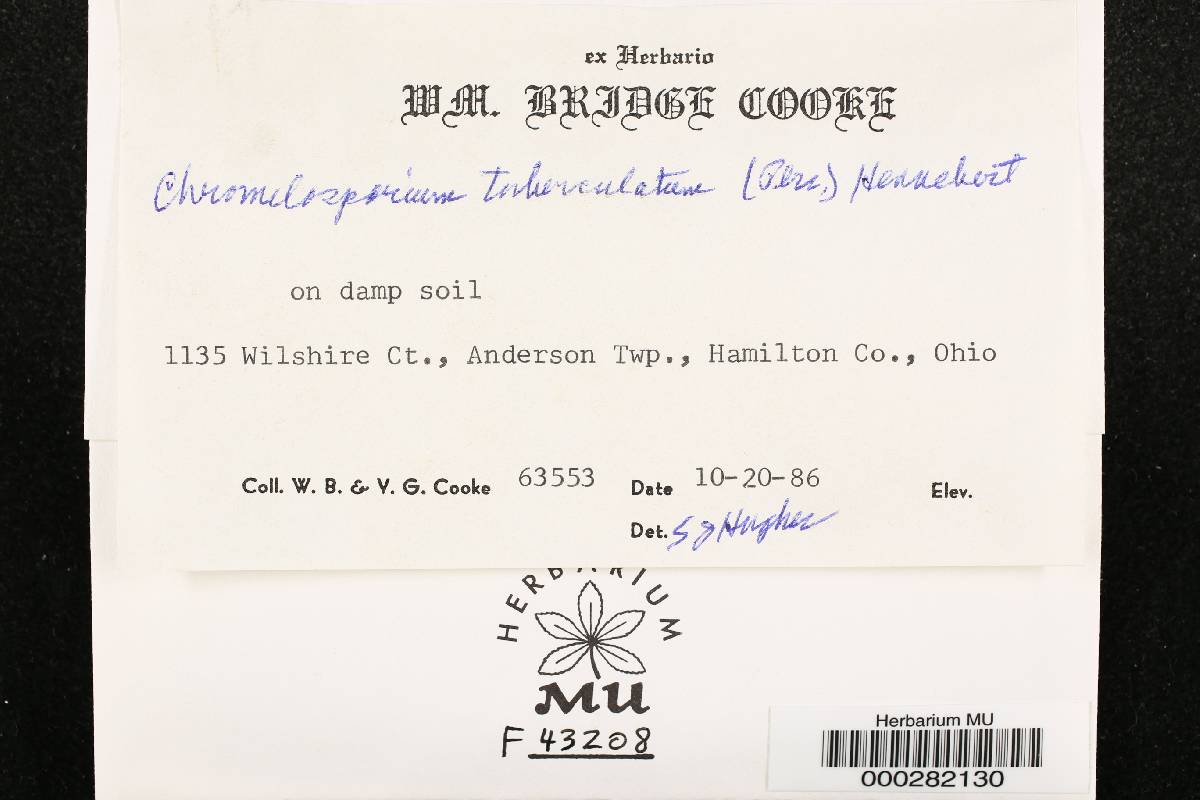 ex Herbario
WM. BRIDGE COOKE
Chromelosporium tuberculatum (Pers.) Hennebert
on damp soil
1135 Wilshire Ct., Anderson Twp., Hamilton Co., Ohio
Coll. W. B. & V. G. Cooke 63553 Date 10-20-86 Elev.
Det. S J Hughes
HERBARIUM
MU
F 43208
Herbarium MU
000282130